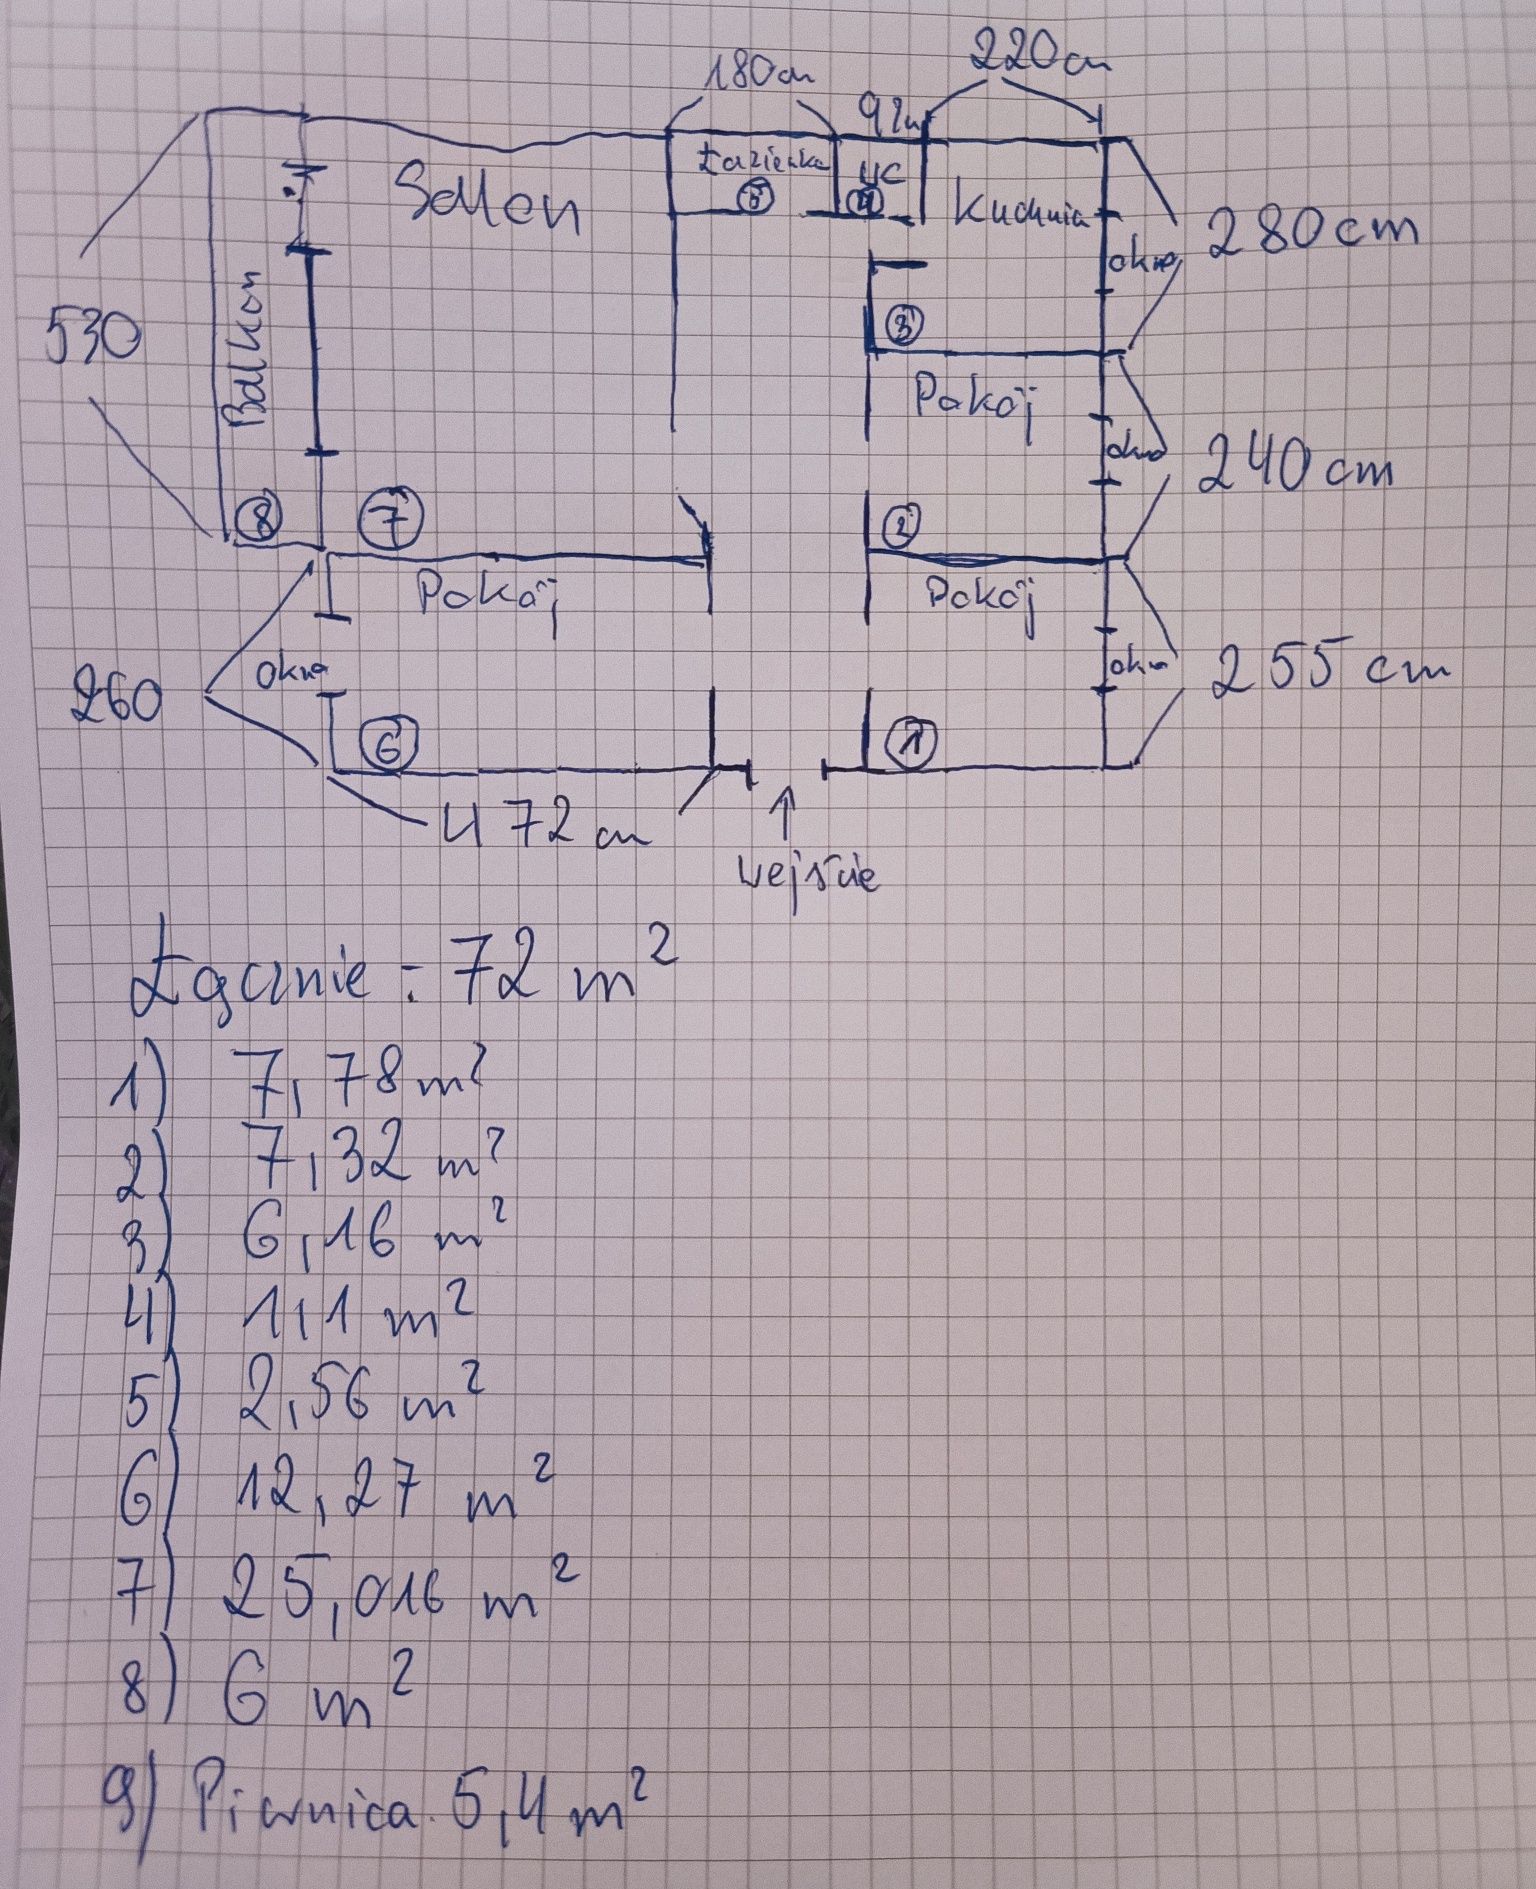 220cm
180cm
92cm
Łazienka
WC
Salon
5
4
Kuchnia
280cm
okno
Balkon
530
3
Pokój
okno
240cm
8
7
2
Pokój
Pokój
okno
okno
255cm
260
6
1
472cm
wejście
Łącznie: 72 m²
1) 7,78 m²
2) 7,32 m²
3) 6,16 m²
4) 1,1 m²
5) 2,56 m²
6) 12,27 m²
7) 25,016 m²
8) 6 m²
9) Piwnica. 5,4 m²